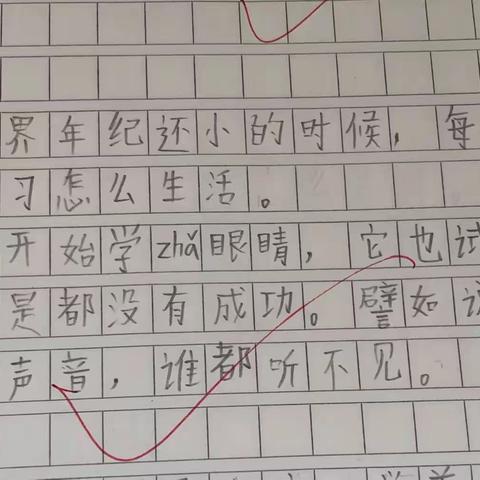 界年纪还小的时候，每
习怎么生活。
开始学zhǎ眼睛，它也试
是都没有成功。譬如说
声音，谁都听不见。